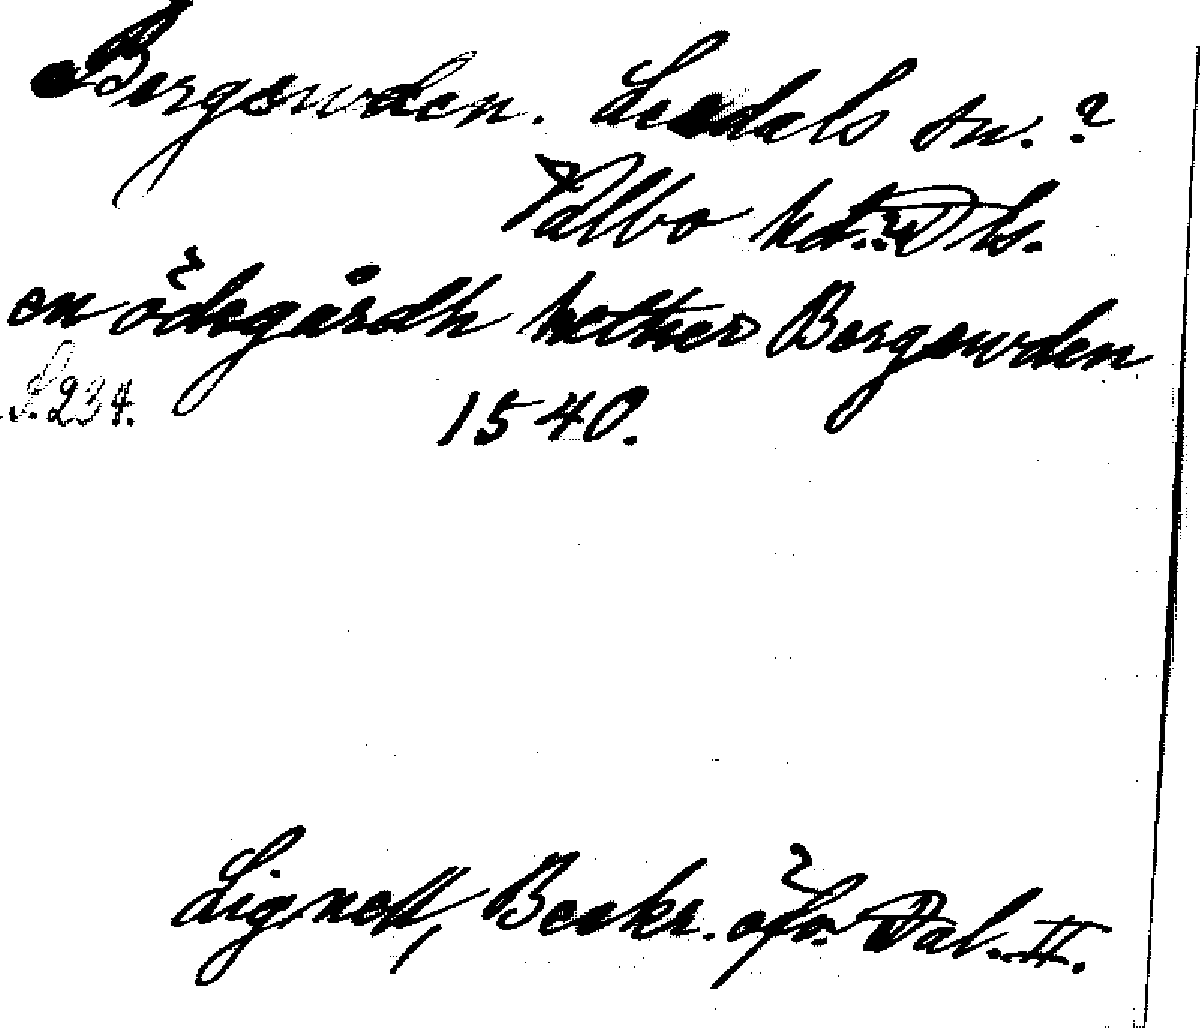 Bergswden. Leedals sn.?
Valbo hd.? Ds.
en ödegårdh hether Bergswden
S. 234. 1540.
Lignell, Beskr. öfv. Dal. II.